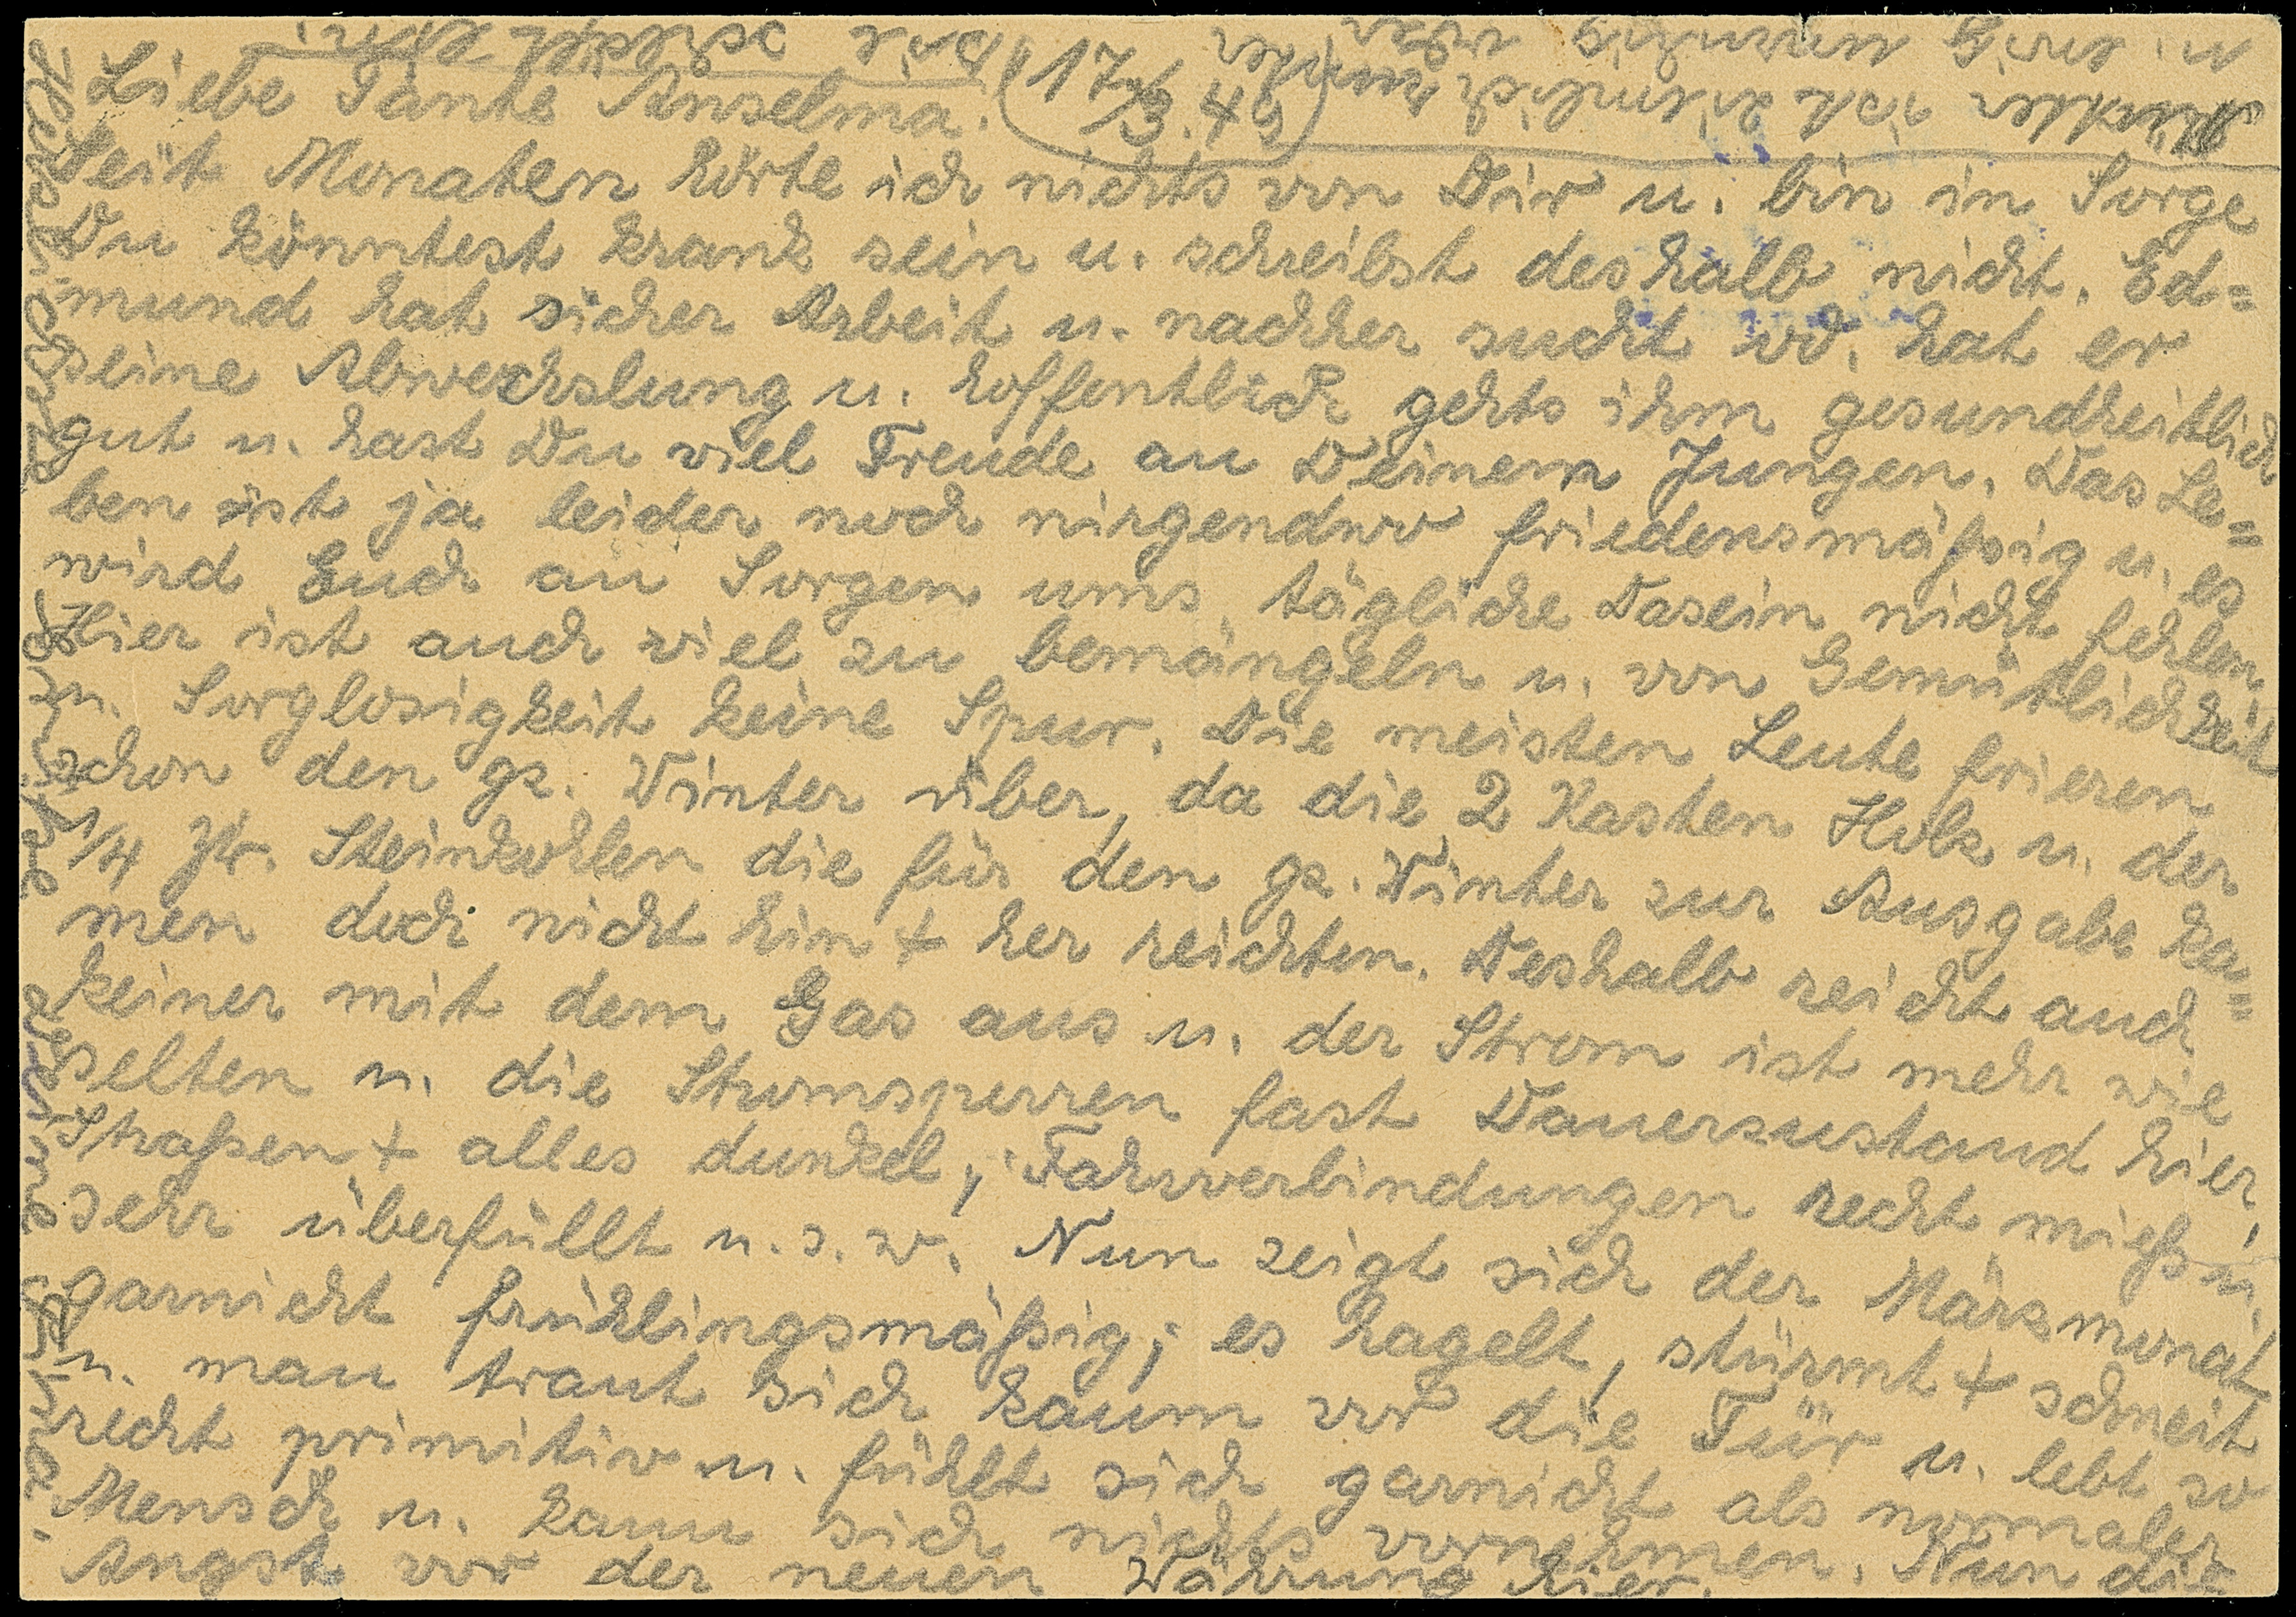 Liebe Tante Anselma. (17/3.49)
Seit Monaten hörte ich nichts von Dir u. bin in Sorge
Du könntest krank sein u. schreibst deshalb nicht. Ed=
mund hat sicher Arbeit u. nachher sucht od. hat er
seine Abwechslung u. hoffentlich gehts ihm gesundheitlich
gut u. hast Du viel Freude an Deinem Jungen. Das Le=
ben ist ja leider noch nirgendwo friedensmäßig u. es
wird Euch an Sorgen ums tägliche Dasein nicht fehlen.
Hier ist auch viel zu bemängeln u. von Gemütlichkeit
u. Sorglosigkeit keine Spur. Die meisten Leute frieren
schon den gz. Winter über, da die 2 Kasten Holz u. der
1/4 Ztr. Steinkohlen die für den gz. Winter zur Ausgabe ka=
men doch nicht hin + her reichten. Deshalb reicht auch
keiner mit dem Gas aus u. der Strom ist mehr wie
selten u. die Stromsperren fast Dauerzustand hier,
Straßen + alles dunkel, Fahrverbindungen recht mieß u.
sehr überfüllt u.s.w. Nun zeigt sich der Märzmonat
garnicht frühlingsmäßig; es hagelt, stürmt + schneit
u. man traut sich kaum vor die Tür u. lebt so
recht primitiv u. fühlt sich garnicht als normaler
Mensch u. kann sich nichts vornehmen. Nun die
Angst vor der neuen Währung hier.